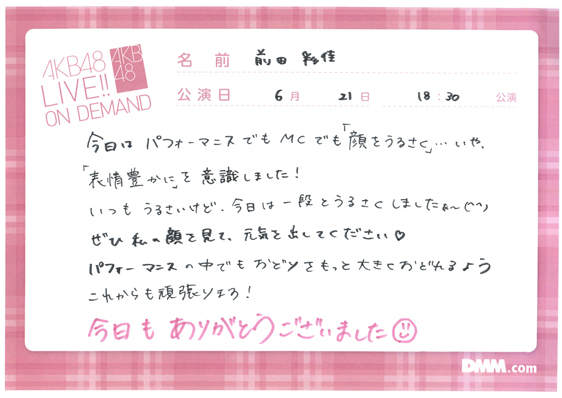 AKB48
LIVE!!
ON DEMAND
AKB
48
名前 前田 彩佳
公演日 6月 21日 18:30 公演
今日は パフォーマンスでも MCでも「顔をうるさく」…いや、
「表情豊かに」を 意識しました!
いつも うるさいけど、今日は 一段とうるさくしましたぁ〜(^^)
ぜひ 私の顔を見て、元気を出してください♡
パフォーマンスの中でも おどりをもっと 大きくおどれるよう
これからも 頑張ります!
今日も ありがとうございました☺
DMM.com